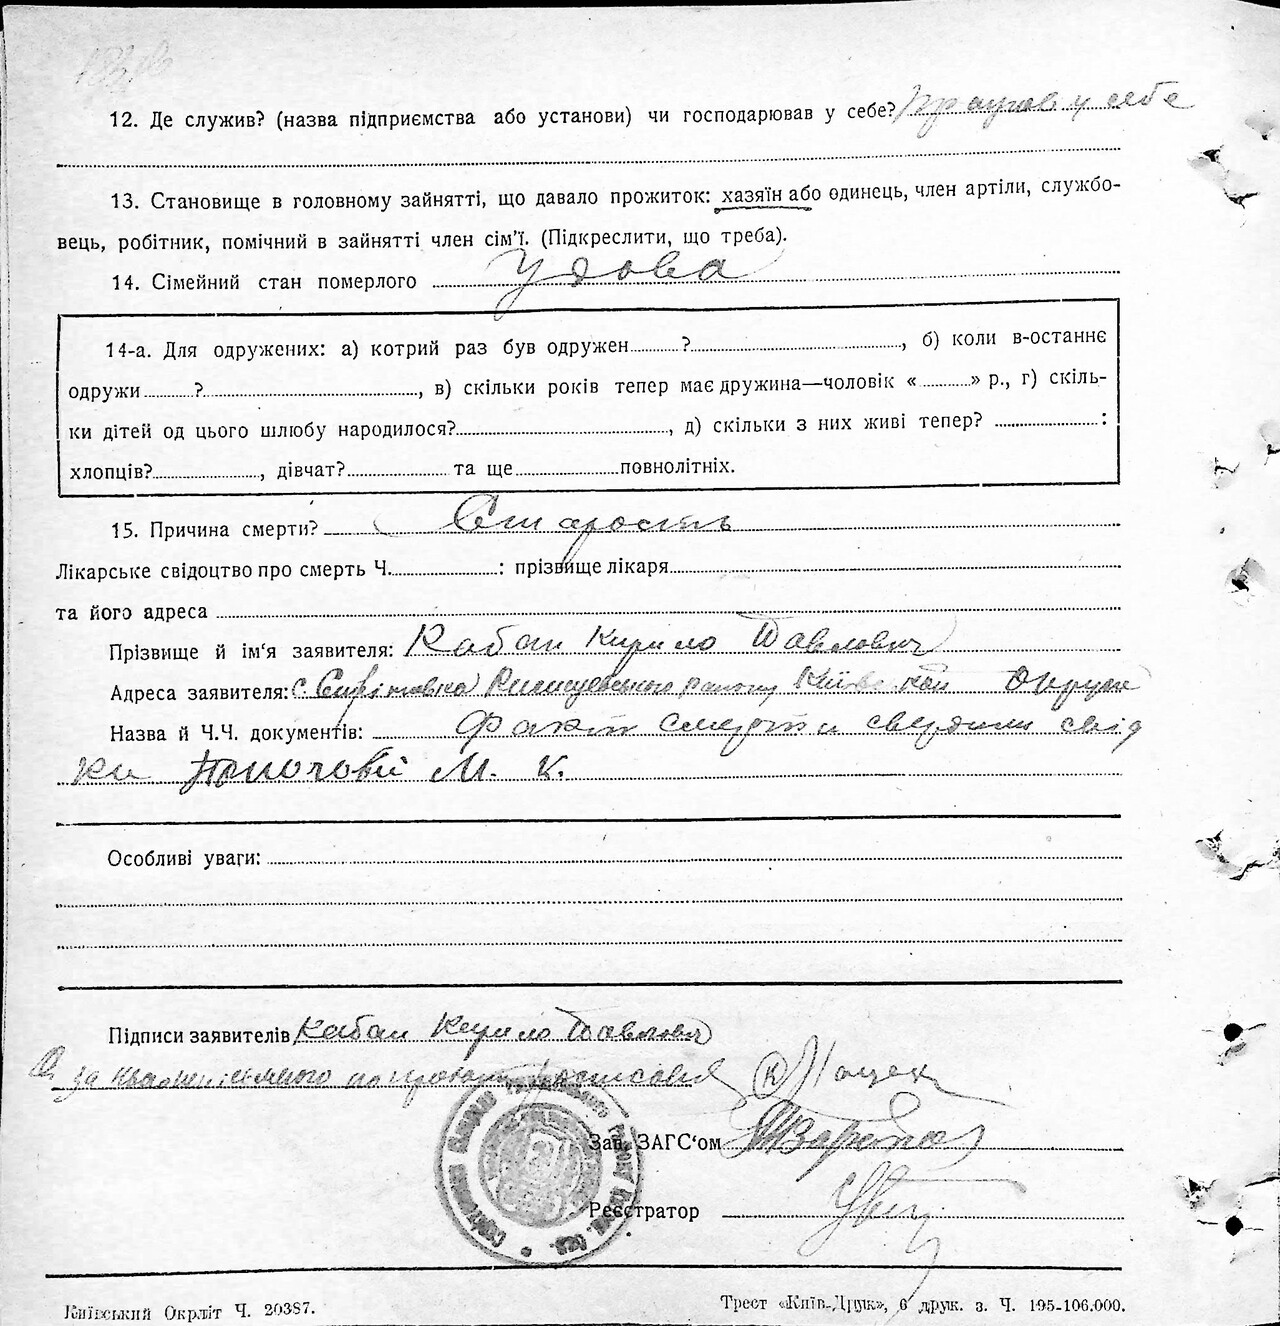 12. Де служив? (назва підприємства або установи) чи господарював у себе? працював у себе
13. Становище в головному зайнятті, що давало прожиток: хазяїн або одинець, член артіли, службо-
вець, робітник, помічний в зайнятті член сім'ї. (Підкреслити, що треба).
14. Сімейний стан померлого Удова
14-а. Для одружених: а) котрий раз був одружен ?, б) коли в-останнє
одружи ?, в) скільки років тепер має дружина—чоловік « » р., г) скіль-
ки дітей од цього шлюбу народилося?, д) скільки з них живі тепер? :
хлопців?, дівчат? та ще повнолітніх.
15. Причина смерти? Старость
Лікарське свідоцтво про смерть Ч. : прізвище лікаря
та його адреса
Прізвище й ім'я заявителя: Кабан Кирило Павлович
Адреса заявителя: с. району Київської Округи
Назва й Ч.Ч. документів: Факт смерти свердили свід
ки М. К.
Особливі уваги:
Підписи заявителів Кабан Кирило Павлович
за
Зав. ЗАГС'ом
Реєстратор
Київський Окрліт Ч. 20387.
Трест «Київ-Друк», 6 друк. з. Ч. 195-106.000.